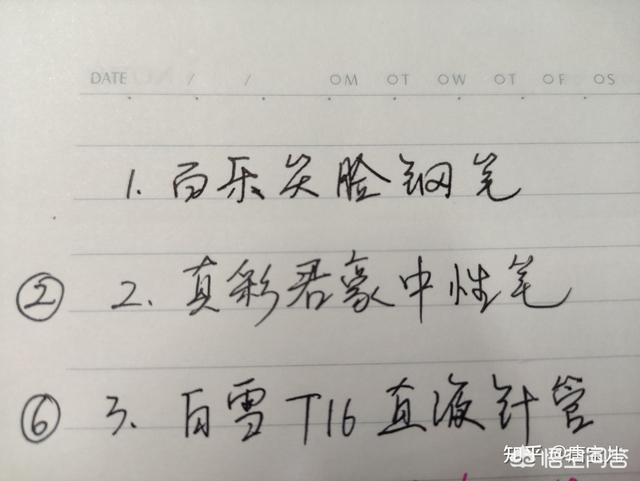 DATE / / OM OT OW OT OF OS
1.百乐笑脸钢笔
② 2. 真彩君豪中性笔
⑥ 3. 白雪T16直液针管
知乎
悟空问答